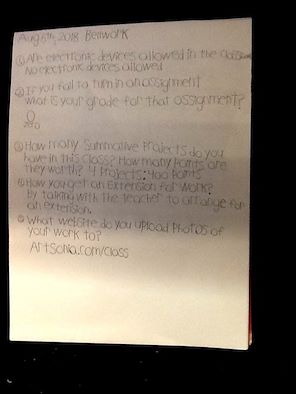 Aug 6th, 2018 Bellwork
① Are electronic devices allowed in the classroom
No electronic devices allowed
② If you fail to turn in an assignment
what is your grade for that assignment?
0
zero
③ How many Summative Projects do you
have in this class? How many Points are
they worth? 4 Projects: 400 Points
④ How you get an Extension for Work?
By talking with the teacher to arrange for
an extension.
⑤ What website do you upload Photos of
your work to?
Artsonia.com/class